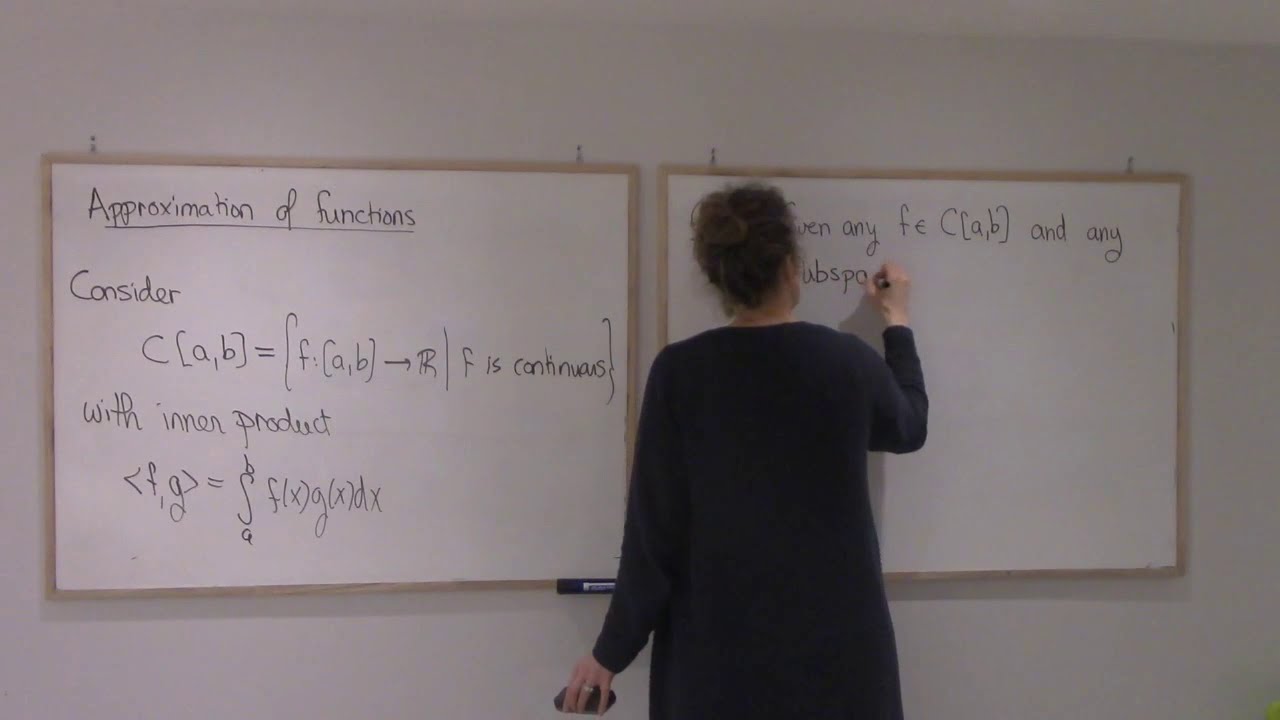 Approximation of functions
Consider
C[a,b] = {f:[a,b] → ℝ | f is continuous}
with inner product
<f,g> = ∫_a^b f(x)g(x)dx
any f ∈ C[a,b] and any